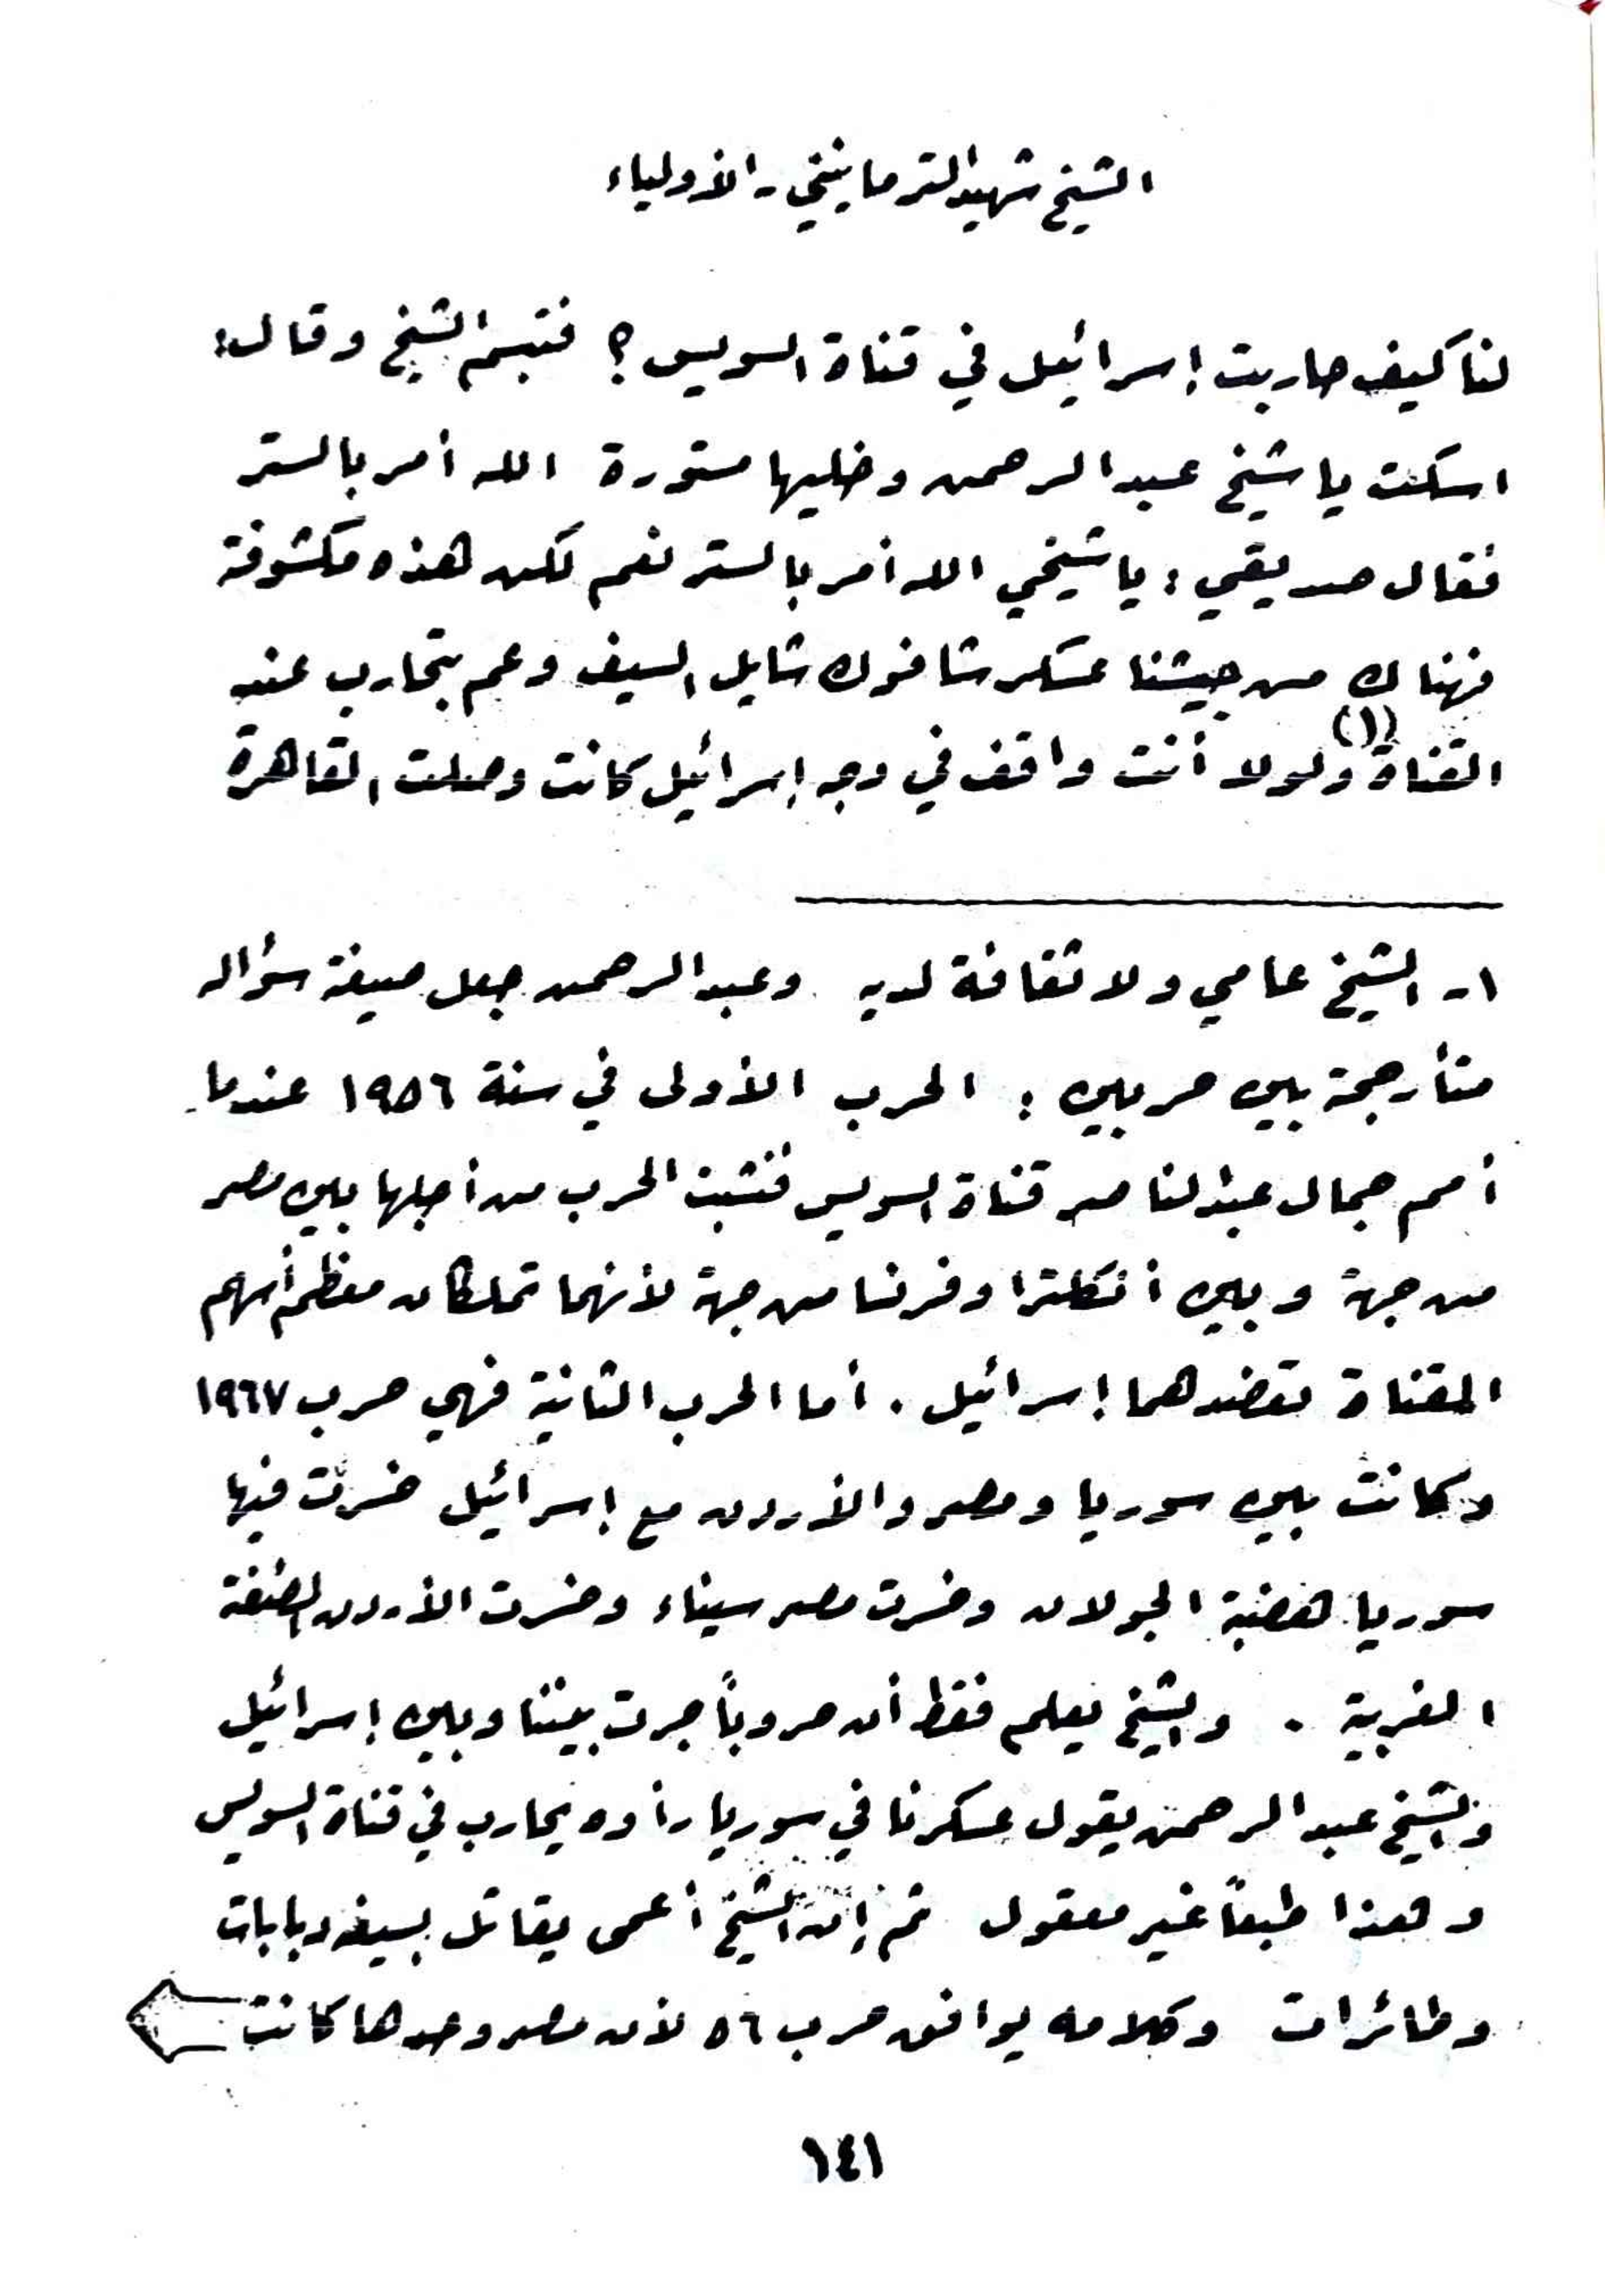 الشيخ شهيد الترمانيني - الأولياء
لنا كيف حاربت إسرائيل في قناة السويس ؟ فتبسم الشيخ وقال :
اسكت يا شيخ عبد الرحمن وخليها مستورة الله أمر بالستر
فقال صديقي : يا شيخي الله أمر بالستر نعم لكن هذه مكشوفة
فهناك من جيشنا عسكر شافوك شايل السيف وعم بتحارب عند
القناة (١) ولولا أنت واقف في وجه إسرائيل كانت وصلت القاهرة
١ - الشيخ عامي ولا ثقافة لديه وعبد الرحمن جعل صيغة سؤاله
متأرجحة بين حربين : الحرب الأولى في سنة ١٩٥٦ عندما
أمم جمال عبد الناصر قناة السويس فنشبت الحرب من أجلها بين مصر
من جهة وبين أنكلترا وفرنسا من جهة لأنهما تملكان معظم أسهم
القناة تعضدهما إسرائيل . أما الحرب الثانية فهي حرب ١٩٦٧
وكانت بين سوريا ومصر والأردن مع إسرائيل خسرت فيها
سوريا هضبة الجولان وخسرت مصر سيناء وخسرت الأردن الضفة
الغربية . والشيخ يعلم فقط أن حروباً جرت بيننا وبين إسرائيل
والشيخ عبد الرحمن يقول عسكرنا في سوريا رأوه يحارب في قناة السويس
وهذا طبعاً غير معقول ثم إن الشيخ أعمى يقاتل بسيفه دبابات
وطائرات وكلامه يوافق حرب ٥٦ لأن مصر وحدها كانت
١٤١